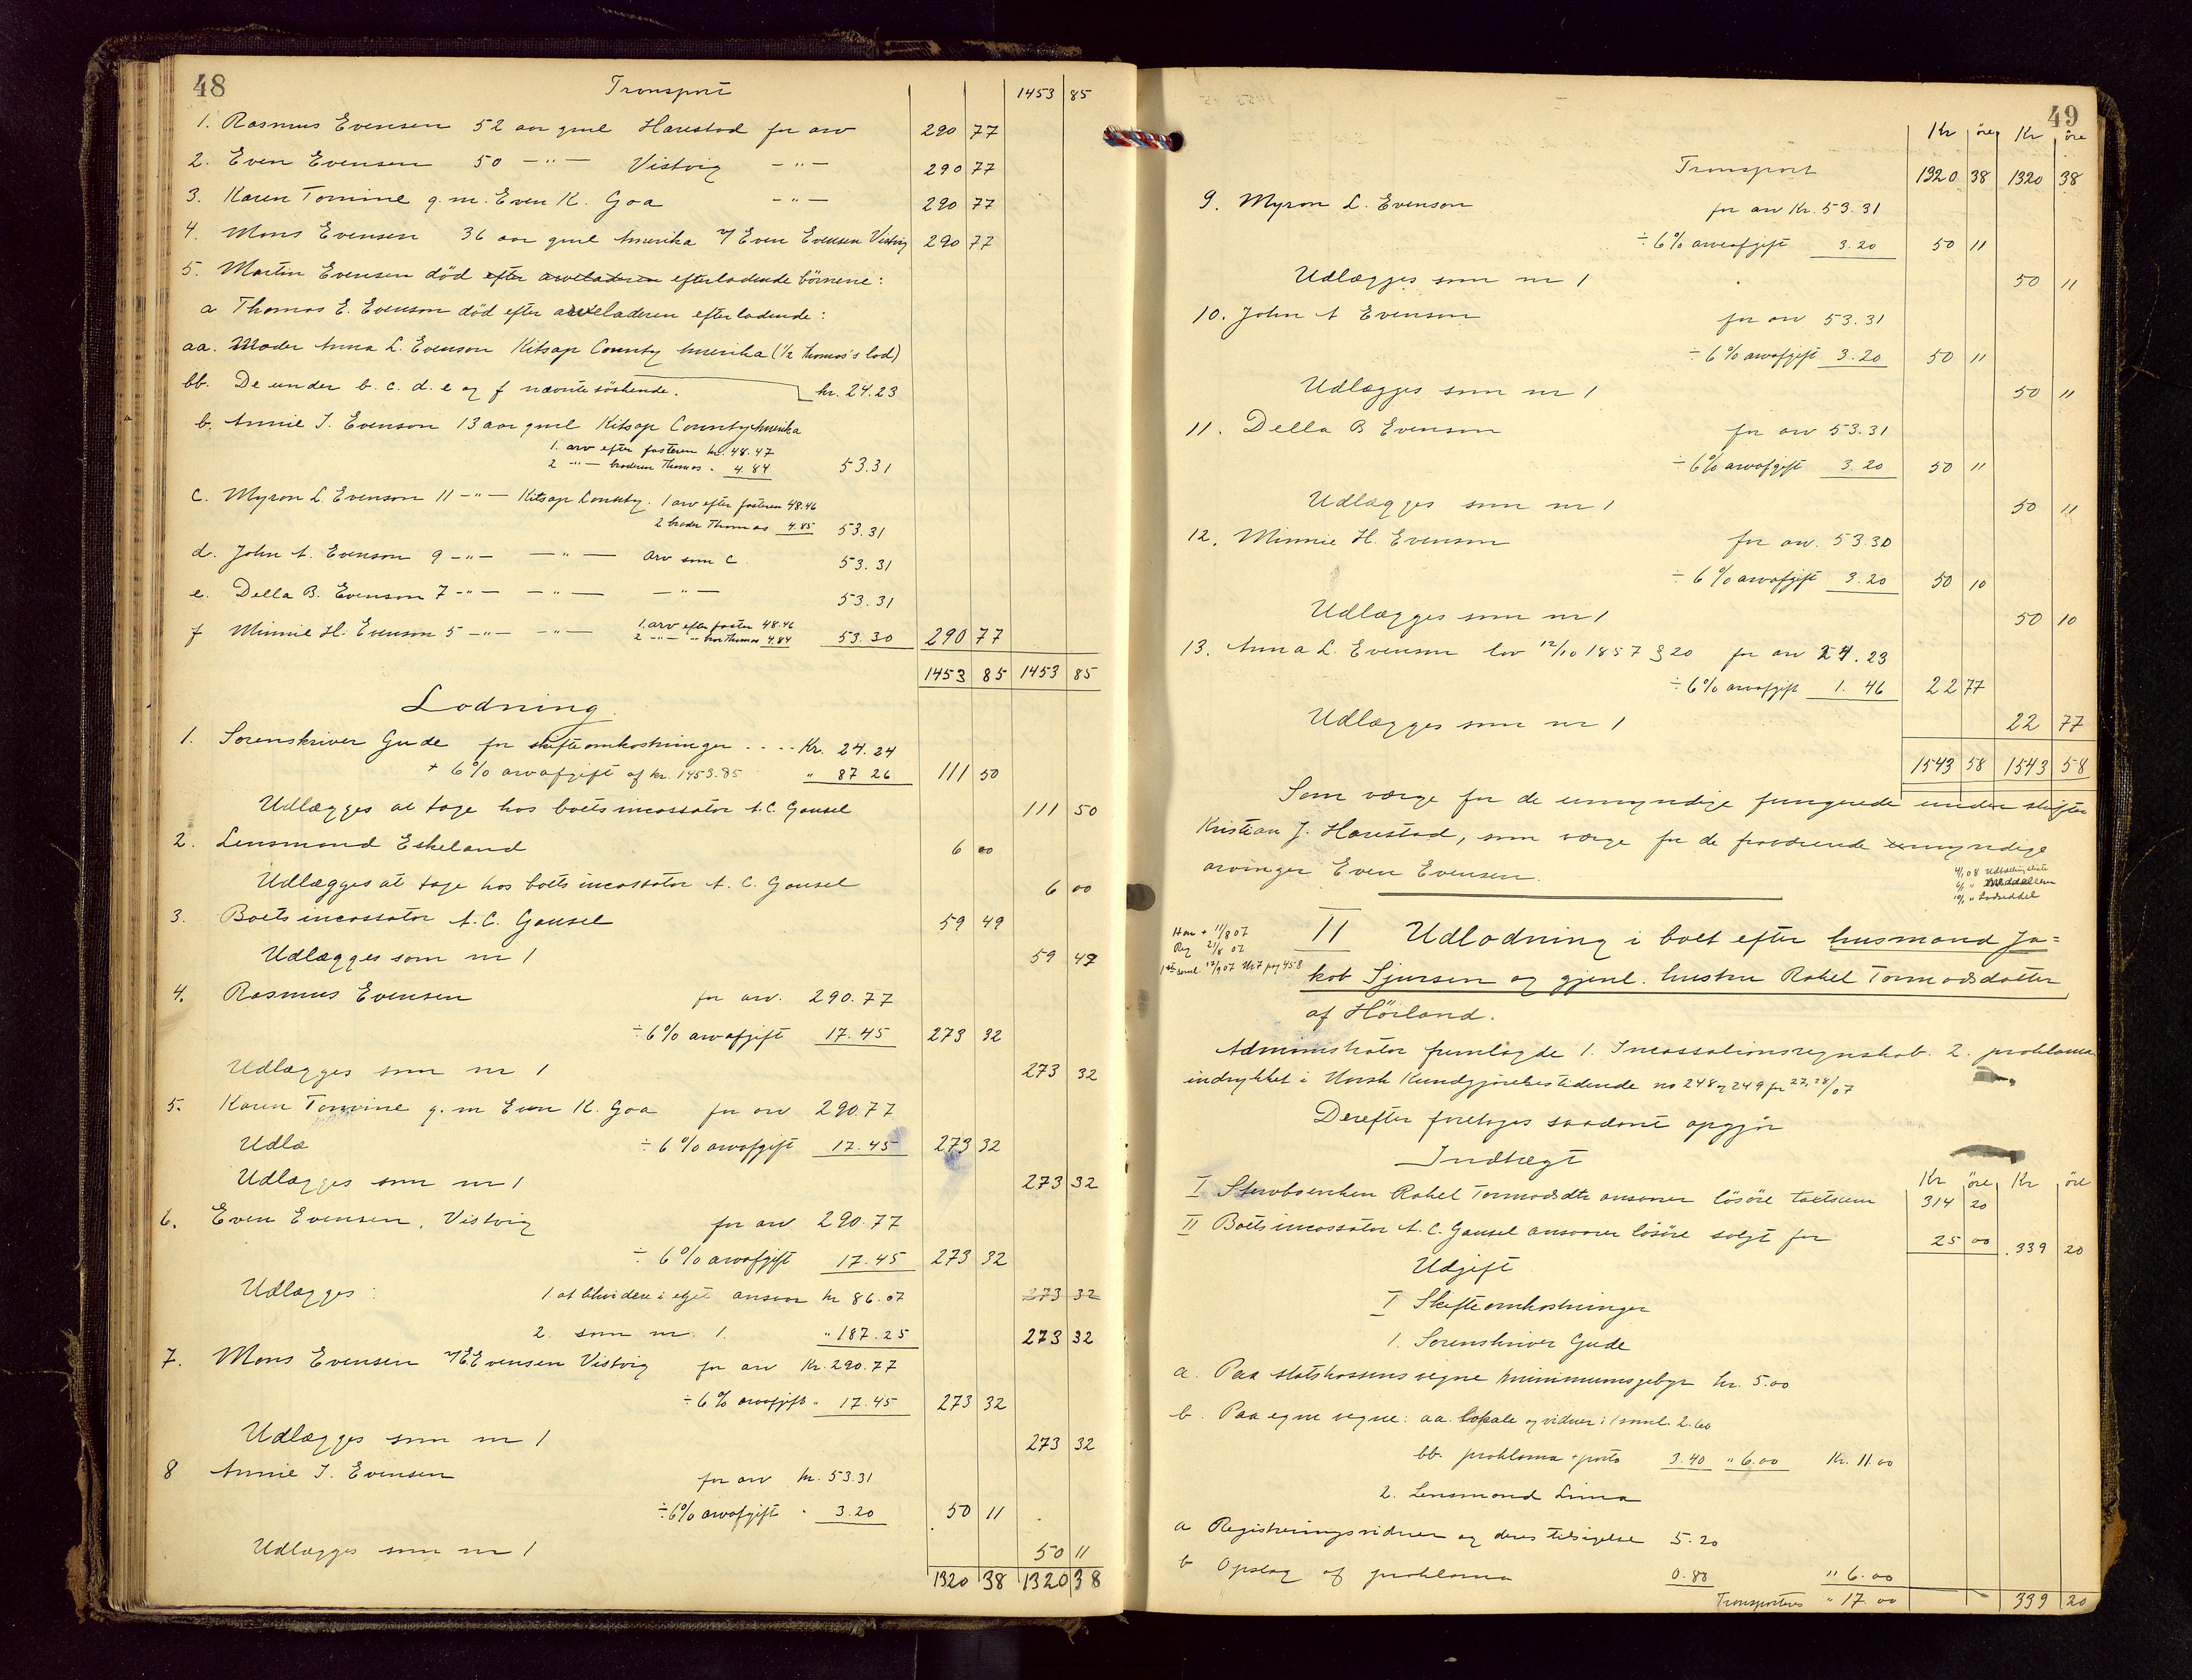 48
Transport 1453 85
1. Rasmus Evensen 52 aar gml Harestad for arv 290 77
2. Even Evensen 50 -"- Vistvig -"- 290 77
3. Karen Tomine g. m. Even K. Goa -"- 290 77
4. Mons Evensen 36 aar gml Amerika v/ Even Evensen Vistvig 290 77
5. Martin Evensen död efter arveladeren efterladende börnene:
a Thomas E. Evenson död efter arveladeren efterladende:
aa. Moder Anna L. Evenson Kitsap County Amerika (1/2 Thomas's lod)
bb. De under b. c. d. e og f nævnte söskende. kr. 24.23
b. Annie J. Evenson 13 aar gml Kitsap County Amerika
1. arv efter fasteren kr. 48.47
2 -"- broderen Thomas " 4.84 53.31
c. Myron L. Evenson 11 -"- Kitsap County. 1 arv efter fasteren 48.46
2 broder Thomas 4.85 53.31
d. John A. Evenson 9 -"- -"- arv som c. 53.31
e. Della B. Evenson 7 -"- -"- -"- 53.31
f Minnie H. Evenson 5 -"- -"- 1. arv efter faster 48.46
2 -"- " bror Thomas 4.84 53.30 290 77
1453 85 1453 85
Lodning
1. Sorenskriver Gude for skifteomkostninger .... Kr. 24.24
+ 6% arvafgift af kr. 1453.85 " 87 26 111 50
Udlægges at tage hos boets incassator A. C. Gausel 111 50
2. Lensmand Eskeland 6 00
Udlægges at tage hos boets incassator A. C. Gausel 6 00
3. Boets incassator A. C. Gausel 59 49
Udlægges som nr 1 59 49
4. Rasmus Evensen for arv. 290.77
÷ 6% arvafgift 17.45 273 32
Udlægges som nr 1 273 32
5. Karen Tomine g. m Even K. Goa for arv 290.77
Udlæ ÷ 6% arvafgift 17.45 273 32
Udlægges som nr 1 273 32
6. Even Evensen, Vistvig for arv 290.77
÷ 6% arvafgift 17.45 273 32
Udlægges: 1 at likvidere i eget ansvar kr 86.07 273 32
2. som nr. 1. " 187.25 273 32
7. Mons Evensen v/ E Evensen Vistvig for arv Kr. 290.77
÷ 6% arvafgift " 17.45 273 32
Udlægges som nr 1 273 32
8 Annie J. Evensen for arv kr. 53.31
÷ 6% arvafgift " 3.20 50 11
Udlægges som nr 1 50 11
1320 38 1320 38
49
Kr öre Kr öre
Transport 1320 38 1320 38
9. Myron L. Evenson for arv Kr. 53.31
÷ 6% arveafgift 3.20 50 11
Udlægges som nr 1 50 11
10. John A Evenson for arv 53.31
÷ 6% arvafgift 3.20 50 11
Udlægges som nr 1 50 11
11. Della B Evenson for arv 53.31
÷ 6% arvafgift 3.20 50 11
Udlægges som nr 1 50 11
12. Minnie H. Evenson for arv. 53.30
÷ 6% arvafgift 3.20 50 10
Udlægges som nr 1 50 10
13. Anna L. Evenson lov 12/10 1857 § 20 for arv 24.23
÷ 6% arvafgift 1.46 22 77
Udlægges som nr 1 22 77
1543 58 1543 58
Som værge for de umyndige fungerede under skiftet
Kristian J. Harestad, som værge for de fraværende myndige
arvinger Even Evensen.
4/1 08 Udlodningsliste
6/1 "
10/1 " Lodseddel
Han + 11/8 07
Reg 21/8 07
1ste saml. 12/9 07 Nr 7 pag 458
II Udlodning i boet efter husmand Ja=
kob Sjursen og gjenl. hustru Rakel Tormodsdatter
af Hörland.
Administrator fremlagde 1. Incassationsregnskab. 2. proklama
indrykket i Norsk Kundgjörelsestidende no 248 og 249 fr 27, 28/ 07
Derefter foretoges saadant opgjör
Indtægt
Kr öre Kr öre
I Stervboenken Rakel Tormodsdtr ansvarer lösöre taxtsum 314 20
II Boets incassator A. C. Gausel ansvarer lösöre solgt for 25 00 339 20
Udgift
I Skifteomkostninger
1. Sorenskriver Gude
a. Paa statskassens vegne minimumsgebyr kr. 5.00
b. Paa egne vegne: aa. lokale og vidner i 1 saml. 2.60
bb. proklama + porto 3.40 " 6.00 Kr. 11.00
2. Lensmand Lima
a Registreringsvidner og deres tilsigelse 5.20
b Opslag af proklama 0.80 " 6.00
Transporteres " 17.00 339 20